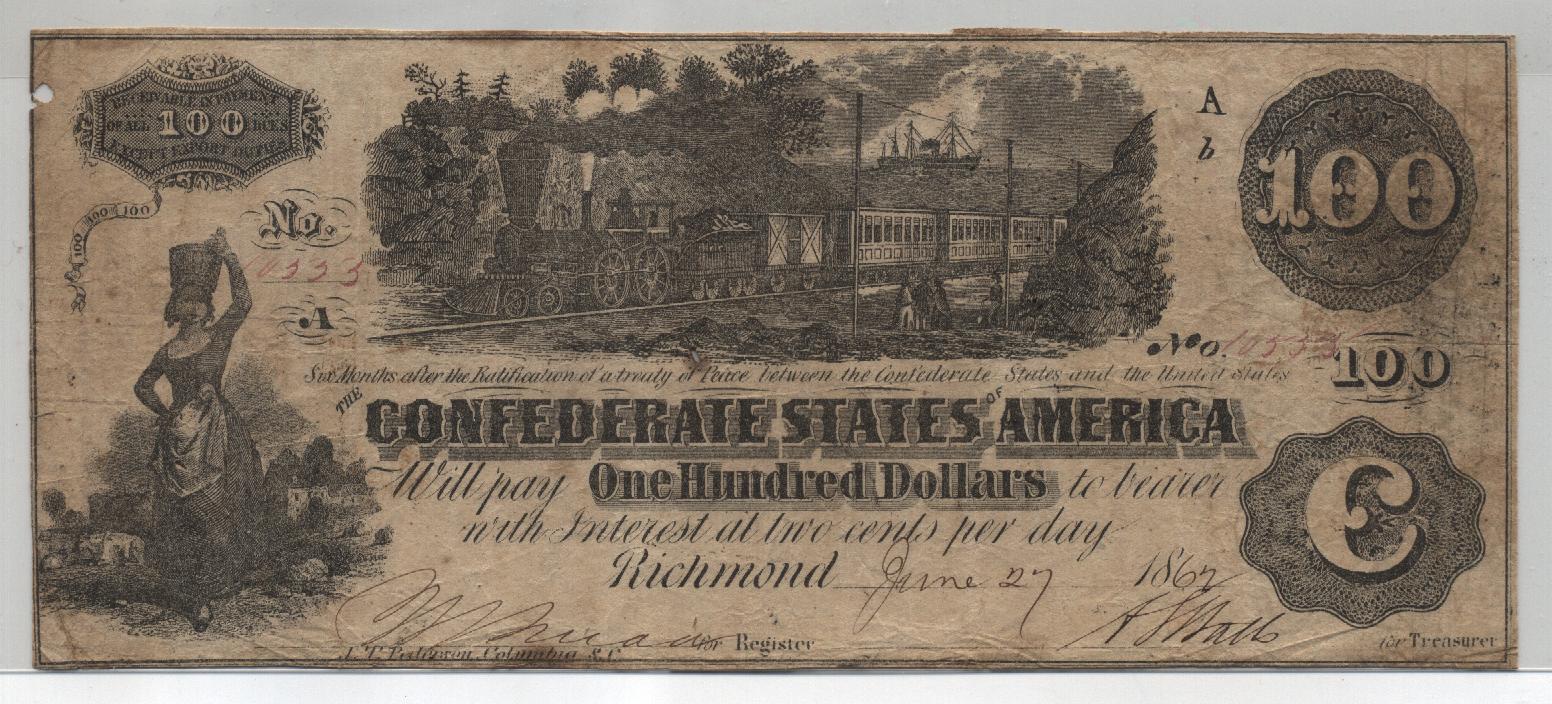 RECEIVABLE IN PAYMENT
OF ALL 100 DUES
EXCEPT EXPORT DUTIES
100 100 100
No.
10533
A
A
b
100
No. 10533
100
Six Months after the Ratification of a treaty of Peace between the Confederate States and the United States
THE CONFEDERATE STATES OF AMERICA
Will pay One Hundred Dollars to bearer
with Interest at two cents per day
Richmond June 27 1862
C
for Register
for Treasurer
Columbia S.C.